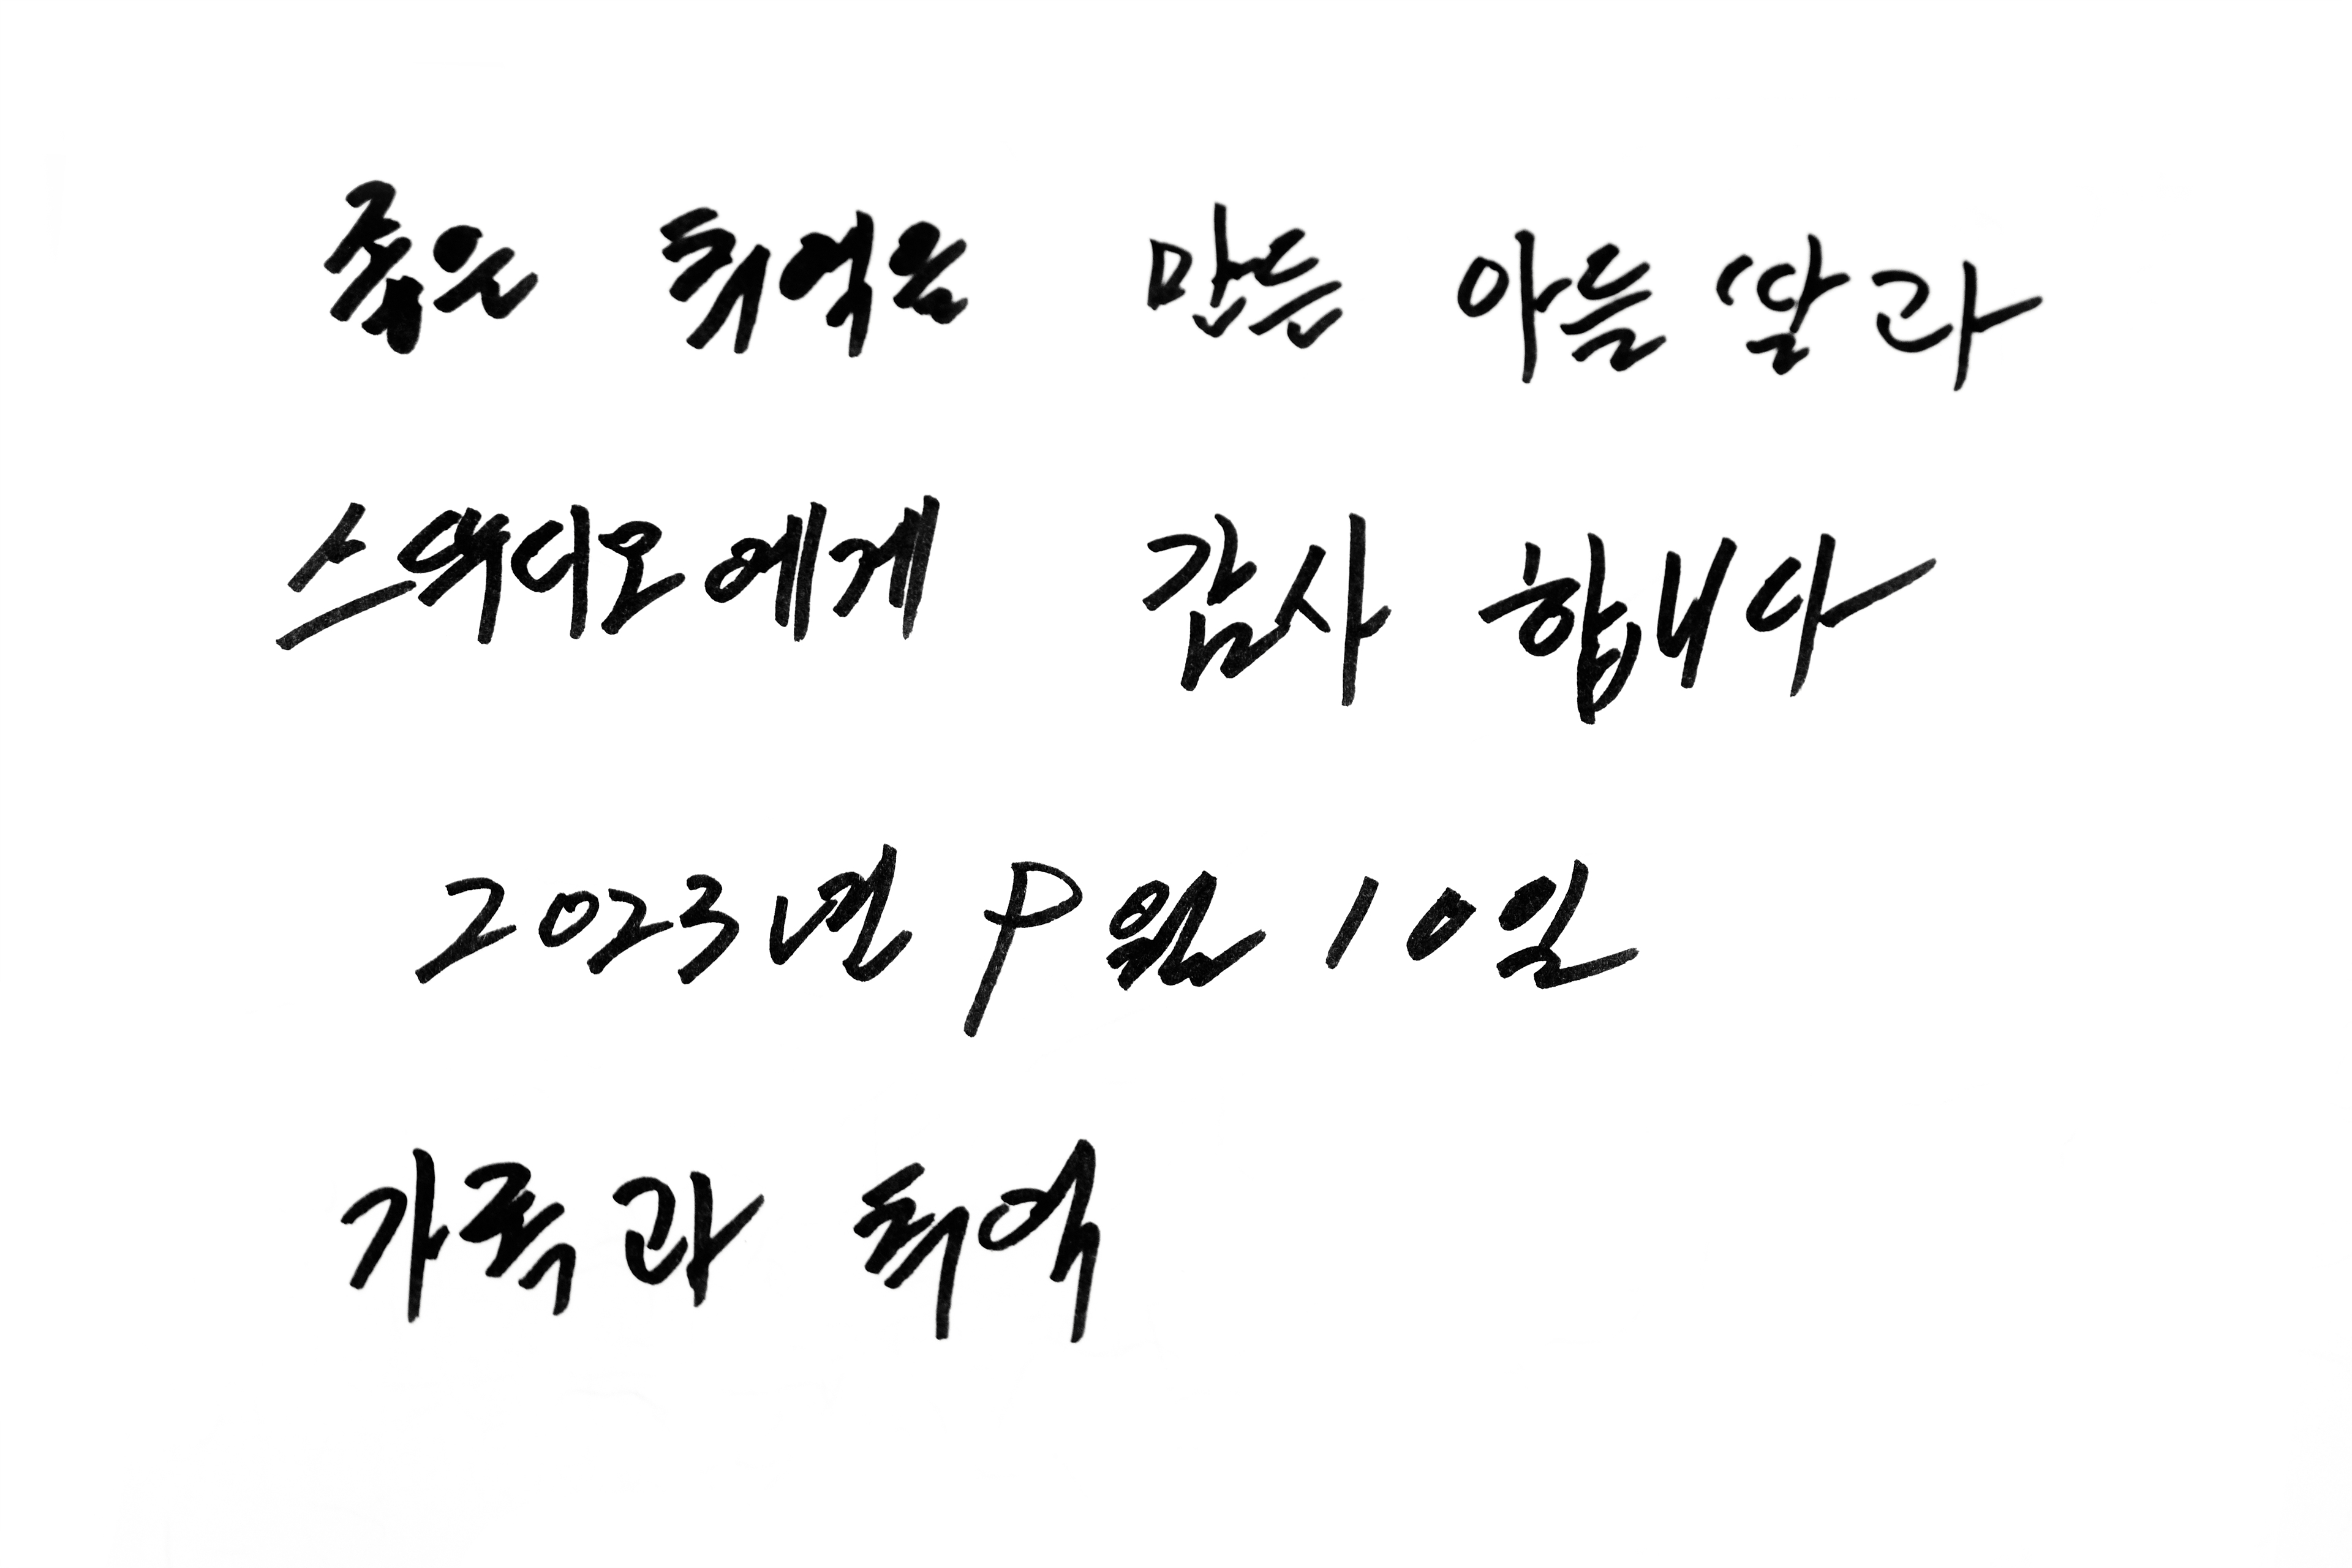 좋은 추억을 만든 아들딸과
스튜디오에게 감사합니다
2023년 9월 10일
가족과